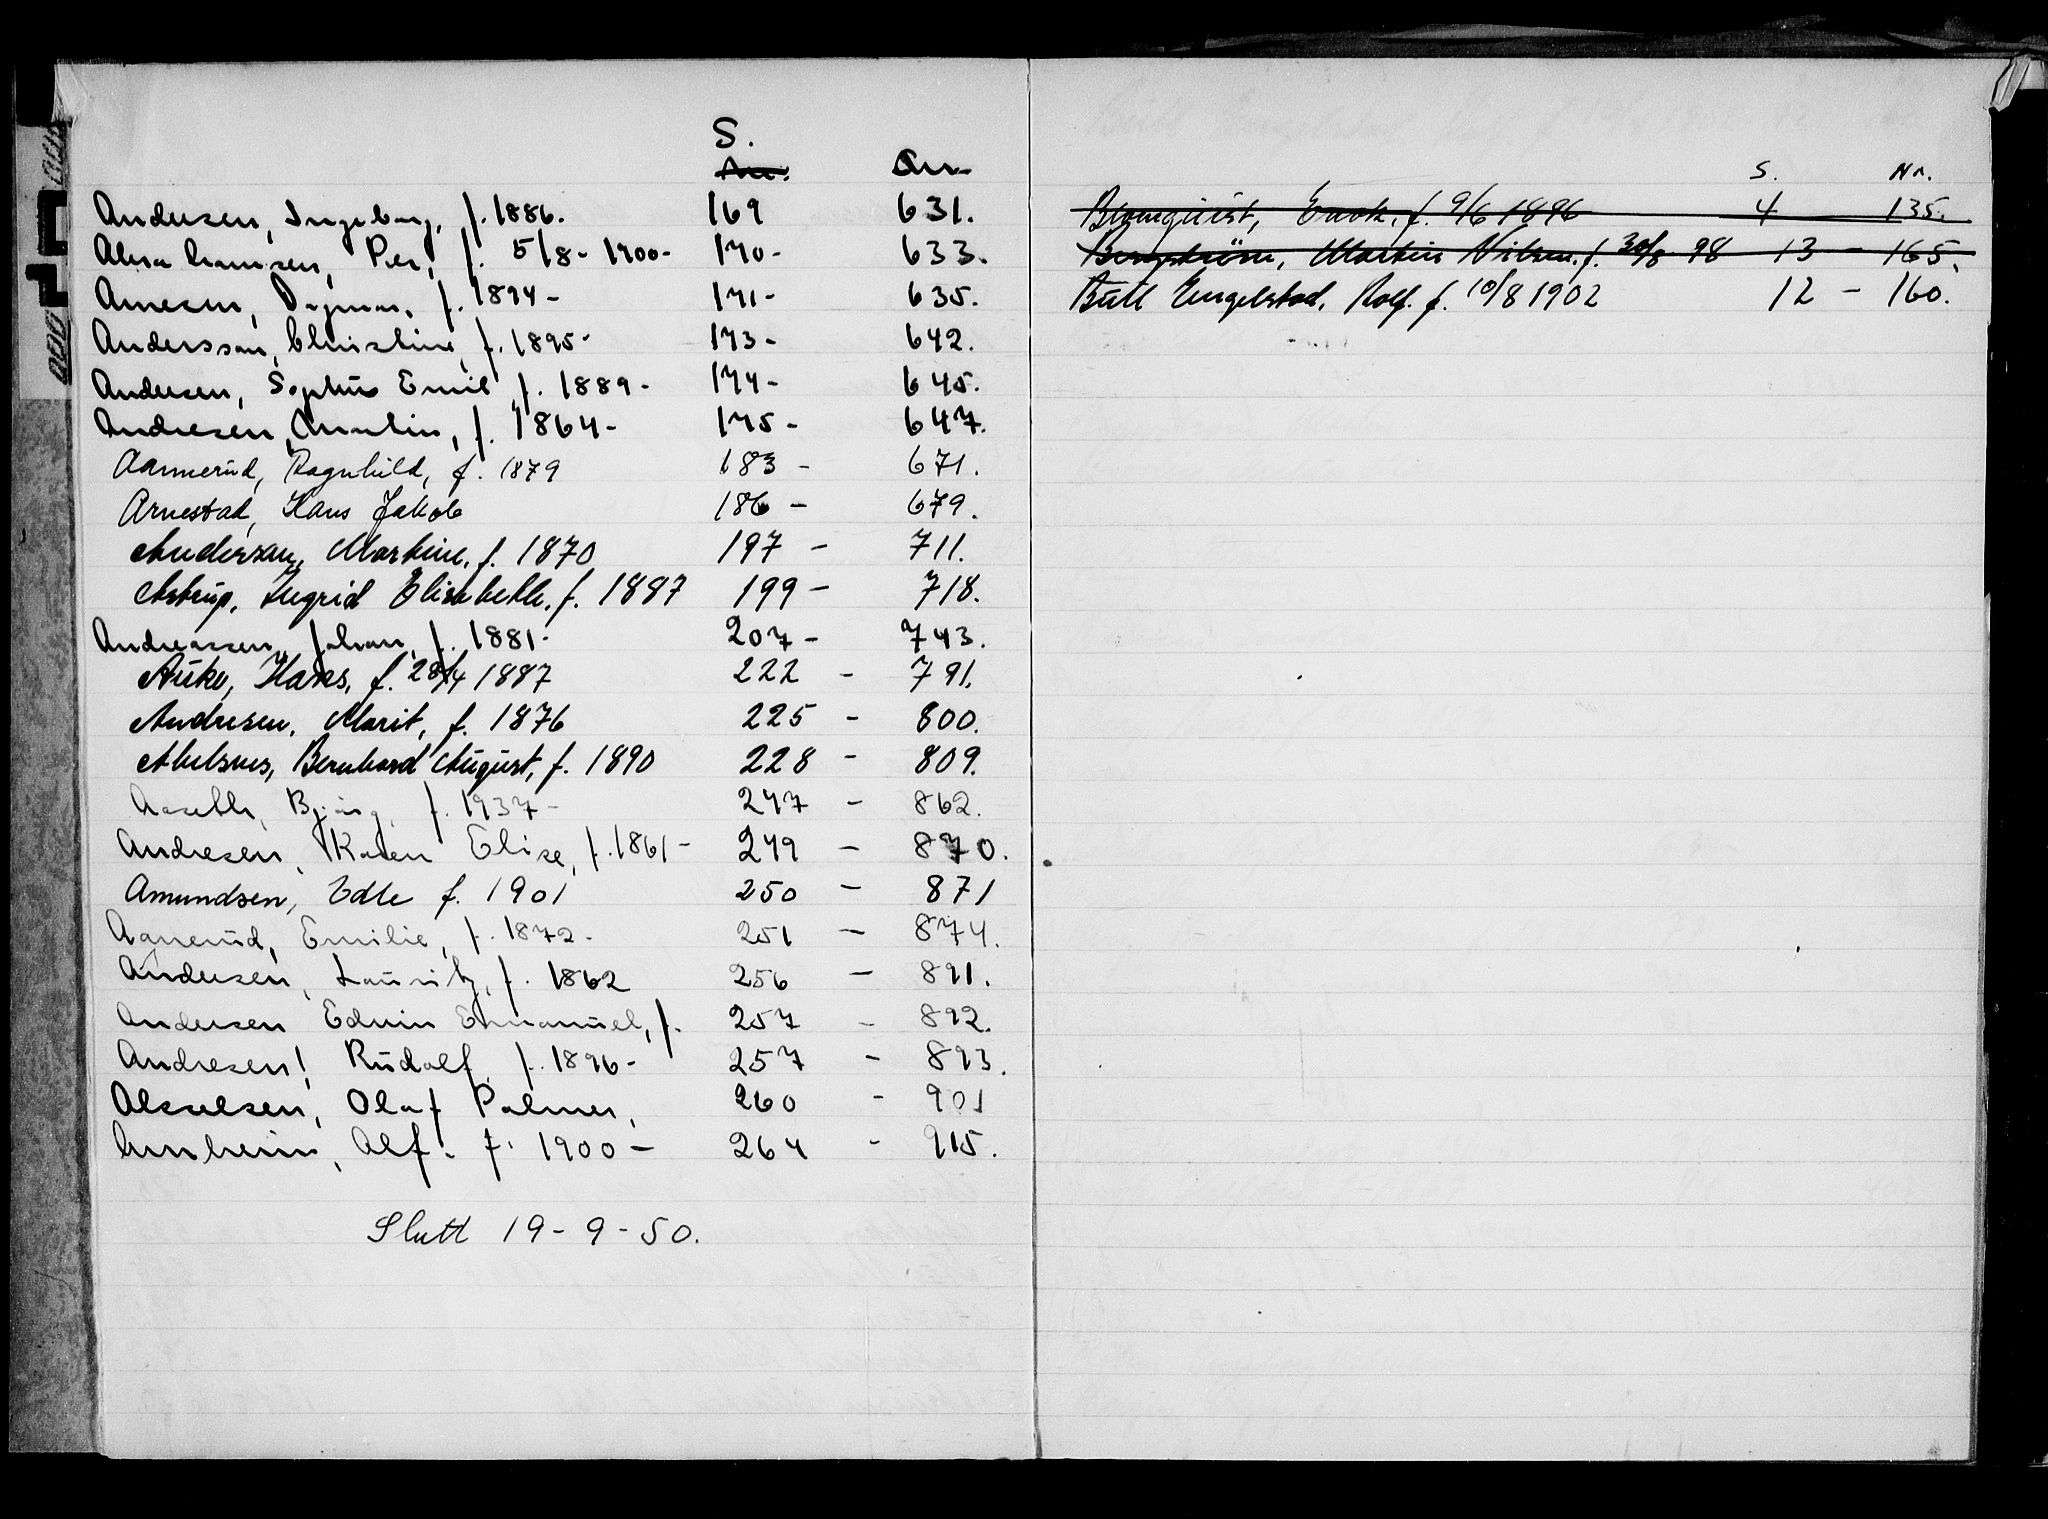 S.
Andersen, Ingeborg, f. 1886. 169 631.
Abrahamsen, Per, f. 5/8-1900- 170- 633.
Arnesen, Dagmar, f. 1894- 171- 635.
Anderssen, Christine, f. 1895- 173- 642.
Andersen, Sophus Emil f. 1889- 174- 645.
Andresen, f. 1864- 175- 647.
Aamerud, Ragnhild, f. 1879 183- 671.
Arnestad, Hans Jakob 186- 679.
Andersen, Martine, f. 1870 197- 711.
Astrup, Ingrid Elisabeth, f. 1887 199- 718.
Andreassen, Johan, f. 1881- 207- 743.
Auke, Hans, f. 28/4 1887 222- 791.
Andresen, Marit, f. 1876 225- 800.
Abelsnes, Bernhard August, f. 1890 228- 809.
Aaseth, Bjørg, f. 1937- 247- 862.
Andresen, Karen Elise, f. 1861- 249- 870.
Amundsen, Edle f. 1901 250- 871
Agnerud, Emilie, f. 1872- 251- 874.
Andersen, Lauritz, f. 1862 256- 891.
Andersen Edvin Emanuel, f. 257- 892.
Andresen, Rudolf, f. 1896- 257- 893.
Olaf Palmer, 260- 901
Arnheim, Alf. f. 1900- 264- 915.
Slutt 19-9-50.
S. Nr.
Blomquist, Enok, f. 9/6 1896 4 135.
Bergström, Martin Nilsen. f. 30/8 98 13- 165.
Bull Engelstad, Rolf. f. 10/8 1902 12- 160.